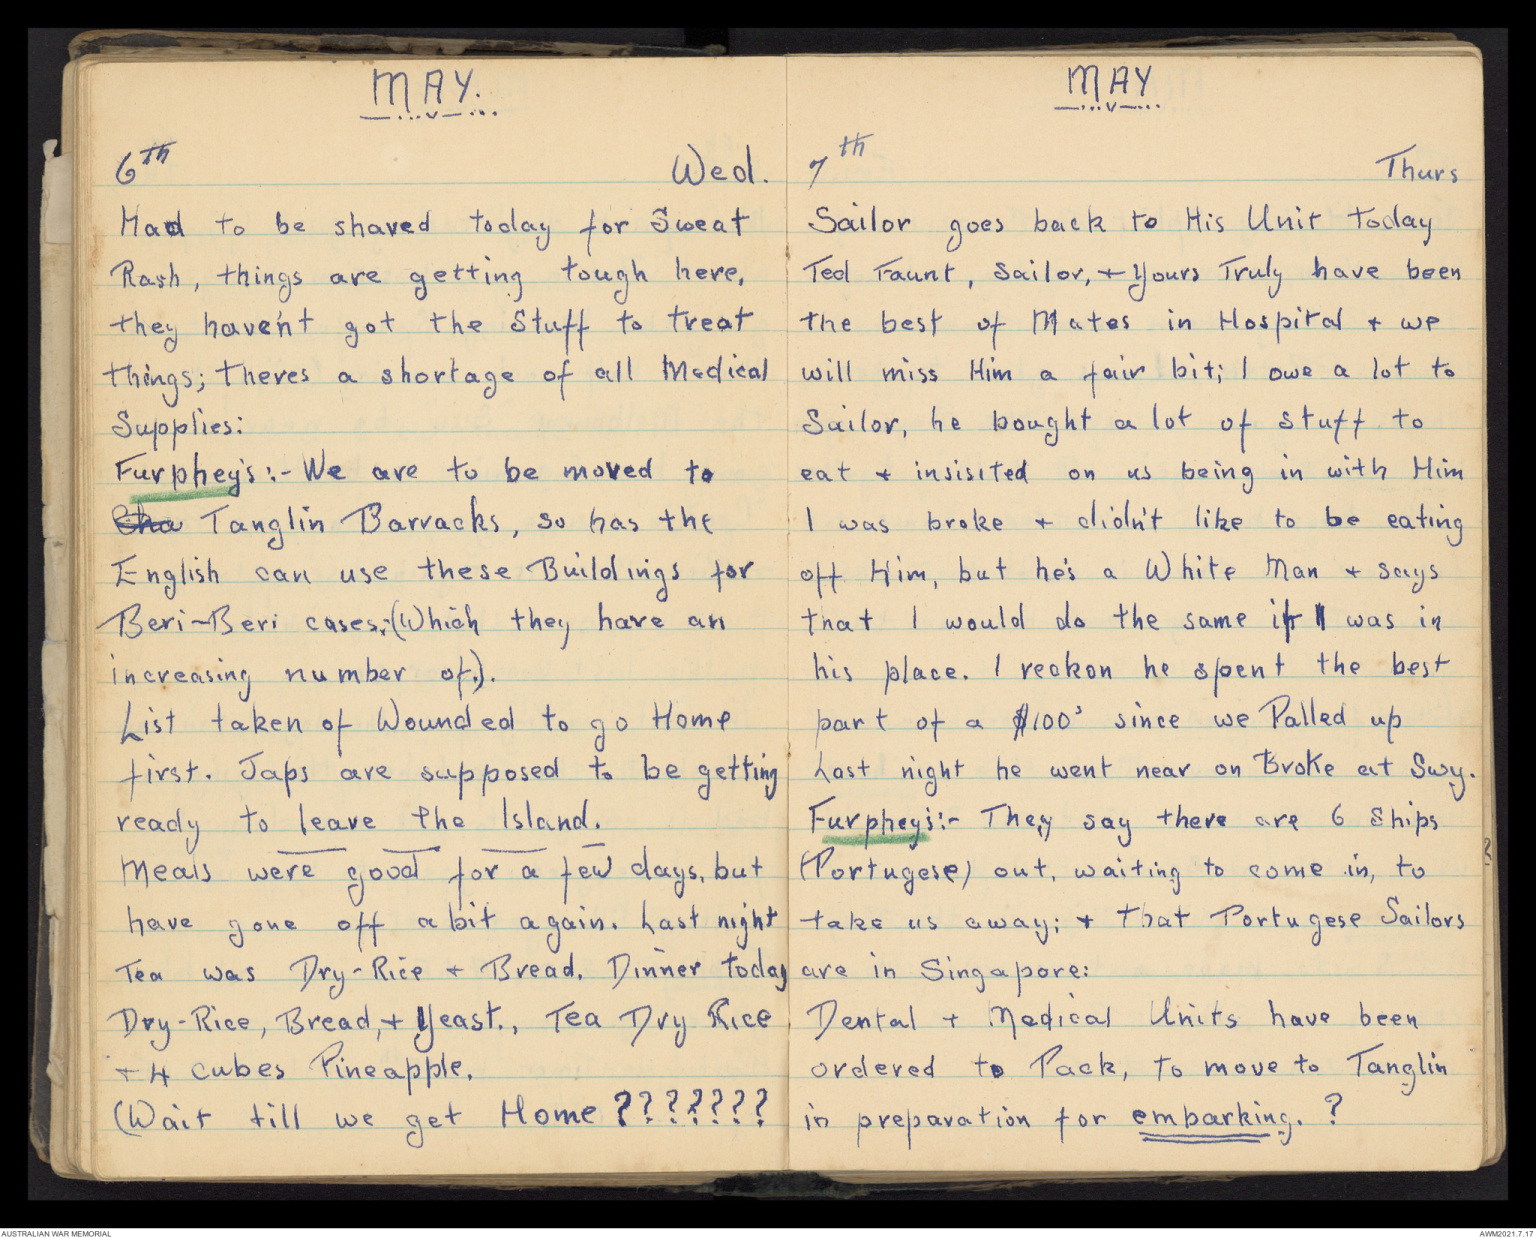 MAY.
6th Wed.
Had to be shaved today for Sweat
Rash, things are getting tough here,
they haven't got the Stuff to treat
things; theres a shortage of all Medical
Supplies:
Furphey's:- We are to be moved to
Cha Tanglin Barracks, so has the
English can use these Buildings for
Beri-Beri cases;(Which they have an
increasing number of.).
List taken of Wounded to go Home
first. Japs are supposed to be getting
ready to leave the Island.
Meals were good for a few days, but
have gone off a bit again. Last night
Tea was Dry-Rice + Bread. Dinner today
Dry-Rice, Bread, + Yeast., Tea Dry Rice
+ 4 cubes Pineapple.
(Wait till we get Home ???????
MAY
7th Thurs
Sailor goes back to His Unit today
Ted Faunt, Sailor, + Yours Truly have been
the best of Mates in Hospital + we
will miss Him a fair bit; I owe a lot to
Sailor, he bought a lot of stuff to
eat + insisited on us being in with Him
I was broke + didn't like to be eating
off Him, but he's a White Man + says
that I would do the same if I was in
his place. I reckon he spent the best
part of a $100s since we Palled up
Last night he went near on Broke at Swy.
Furphey's:- They say there are 6 Ships
(Portugese) out, waiting to come in, to
take us away; + that Portugese Sailors
are in Singapore:
Dental + Medical Units have been
ordered to Pack, to move to Tanglin
in preparation for embarking. ?
AUSTRALIAN WAR MEMORIAL
AWM2021.7.17